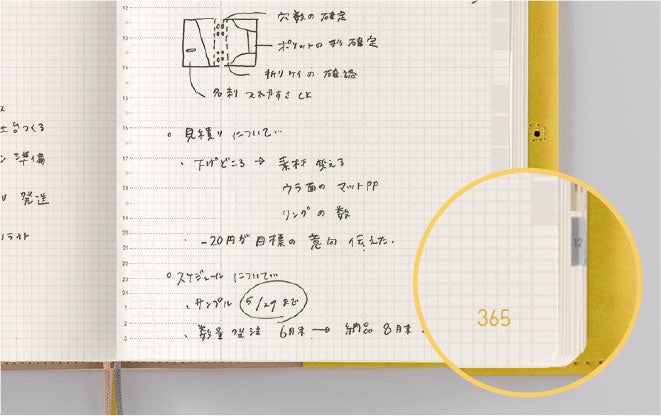 穴数の確定
ポケットの形 確定
折りケイの確認
名刺 入れやすさ CK
土台つくる
準備
発送
ライト
○ 見積りについて…
・下げどころ → 素材 変える
ウラ面の マットPP
リングの数
・-20円が目標の意向 伝えた.
○ スケジュールについて…
・サンプル 5/29まで
・数量発注 6月末 → 納品 8月末.
11
12
13
14
15
16
17
18
19
20
21
22
23
24
1
2
3
12
365